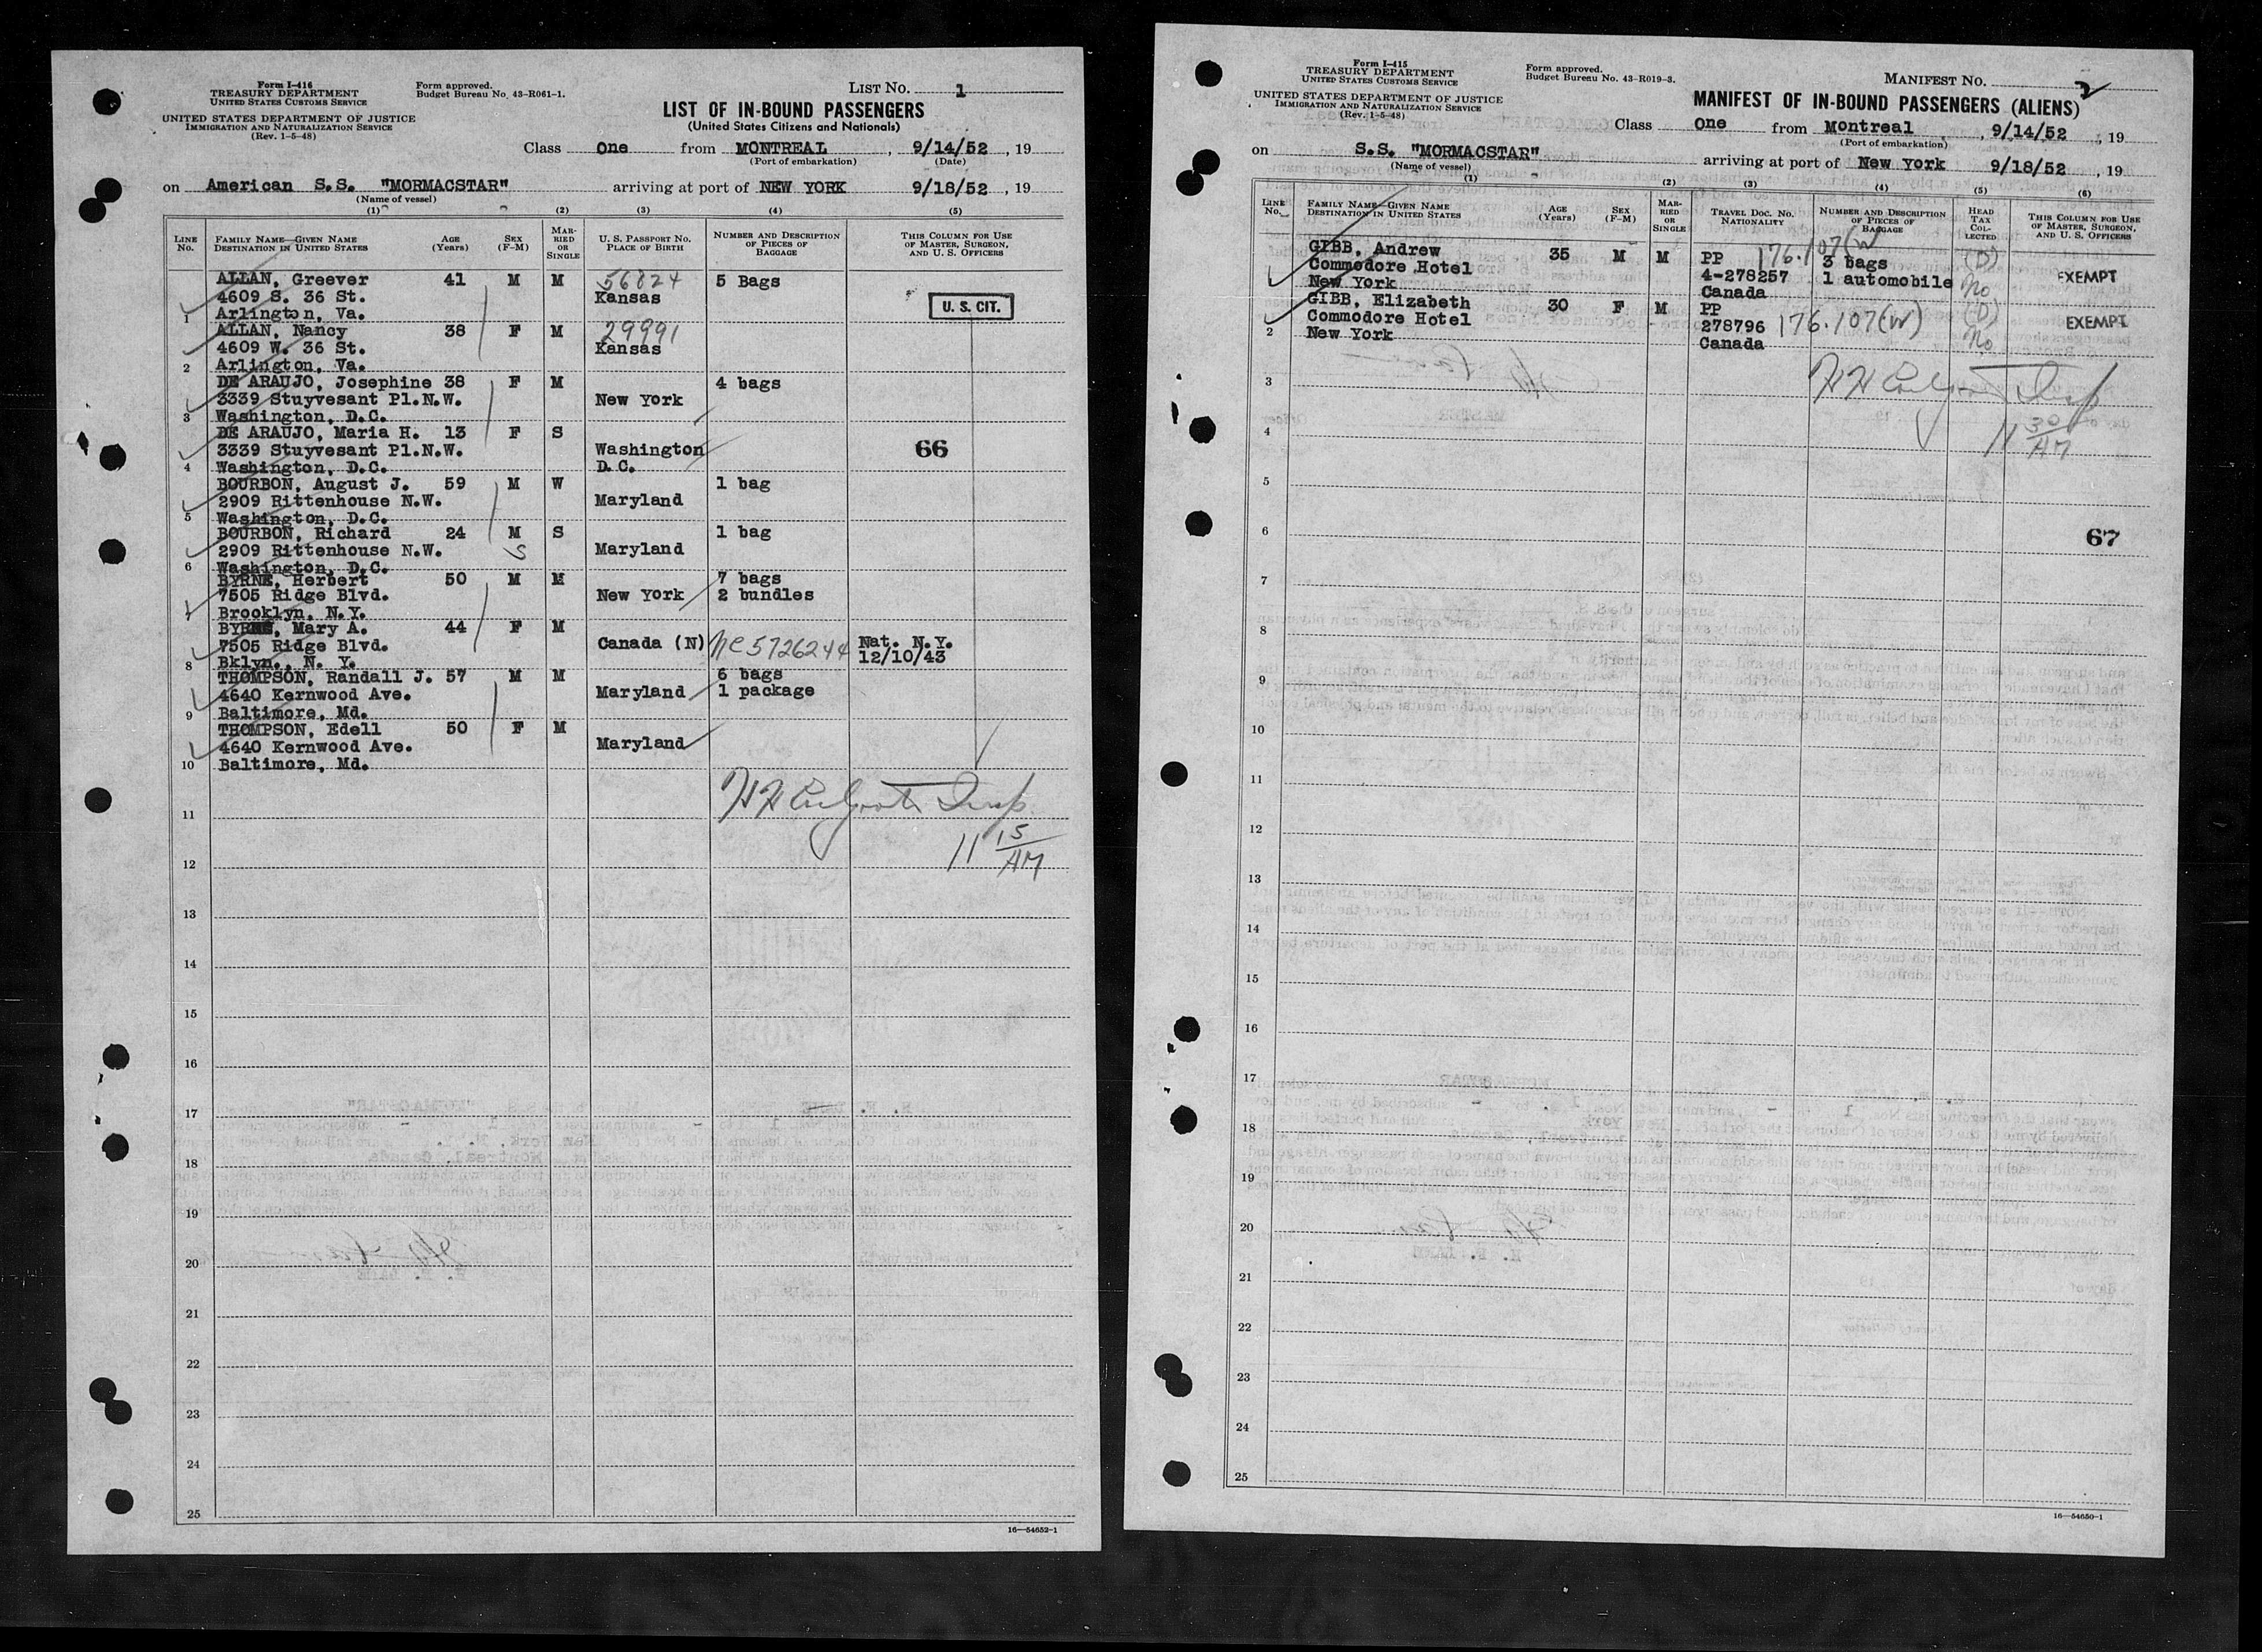 Form I-416
TREASURY DEPARTMENT
UNITED STATES CUSTOMS SERVICE
UNITED STATES DEPARTMENT OF JUSTICE
IMMIGRATION AND NATURALIZATION SERVICE
(Rev. 1-5-48)
Form approved.
Budget Bureau No. 43-R061-1.
LIST No. 1
LIST OF IN-BOUND PASSENGERS
(United States Citizens and Nationals)
Class One from MONTREAL, 9/14/52, 19
(Port of embarkation) (Date)
on American S.S. "MORMACSTAR" arriving at port of NEW YORK 9/18/52, 19
(Name of vessel)
(1) (2) (3) (4) (5)
LINE No. FAMILY NAME—GIVEN NAME DESTINATION IN UNITED STATES AGE (Years) SEX (F-M) MARRIED OR SINGLE U. S. PASSPORT No. PLACE OF BIRTH NUMBER AND DESCRIPTION OF PIECES OF BAGGAGE THIS COLUMN FOR USE OF MASTER, SURGEON, AND U. S. OFFICERS
ALLAN, Greever 41 M M 56824 5 Bags
4609 S. 36 St. Kansas U. S. CIT.
1 Arlington, Va.
ALLAN, Nancy 38 F M 29991
4609 W. 36 St. Kansas
2 Arlington, Va.
DE ARAUJO, Josephine 38 F M 4 bags
3339 Stuyvesant Pl.N.W. New York
3 Washington, D.C.
DE ARAUJO, Maria H. 13 F S
3339 Stuyvesant Pl.N.W. Washington 66
4 Washington, D.C. D.C.
BOURBON, August J. 59 M W 1 bag
2909 Rittenhouse N.W. Maryland
5 Washington, D.C.
BOURBON, Richard 24 M S 1 bag
2909 Rittenhouse N.W. S Maryland
6 Washington, D.C.
BYRNE, Herbert 50 M M 7 bags
7505 Ridge Blvd. New York 2 bundles
7 Brooklyn, N.Y.
BYRNE, Mary A. 44 F M
7505 Ridge Blvd. Canada (N) NC5726244 Nat. N.Y.
8 Bklyn., N. Y. 12/10/43
THOMPSON, Randall J. 57 M M 6 bags
4640 Kernwood Ave. Maryland 1 package
9 Baltimore, Md.
THOMPSON, Edell 50 F M
4640 Kernwood Ave. Maryland
10 Baltimore, Md.
11 Insp.
11 15 AM
12
13
14
15
16
17
18
19
20
21
22
23
24
25
16—54652-1
Form I-415
TREASURY DEPARTMENT
UNITED STATES CUSTOMS SERVICE
UNITED STATES DEPARTMENT OF JUSTICE
IMMIGRATION AND NATURALIZATION SERVICE
(Rev. 1-5-48)
Form approved.
Budget Bureau No. 43-R019-3.
MANIFEST No. 2
MANIFEST OF IN-BOUND PASSENGERS (ALIENS)
Class One from Montreal, 9/14/52, 19
(Port of embarkation)
on S.S. "MORMACSTAR" arriving at port of New York 9/18/52, 19
(Name of vessel)
(1) (2) (3) (4) (5) (6)
LINE No. FAMILY NAME—GIVEN NAME DESTINATION IN UNITED STATES AGE (Years) SEX (F-M) MARRIED OR SINGLE TRAVEL DOC. No. NATIONALITY NUMBER AND DESCRIPTION OF PIECES OF BAGGAGE HEAD TAX COLLECTED THIS COLUMN FOR USE OF MASTER, SURGEON, AND U. S. OFFICERS
GIBB, Andrew 35 M M PP 176.107(W 3 bags (D)
Commodore Hotel 4-278257 1 automobile No EXEMPT
1 New York Canada
GIBB, Elizabeth 30 F M PP (D)
Commodore Hotel 278796 176.107(W) EXEMPT
2 New York Canada No
3 Insp
4 11 30 AM
5
6 67
7
8
9
10
11
12
13
14
15
16
17
18
19
20
21
22
23
24
25
16—54650-1